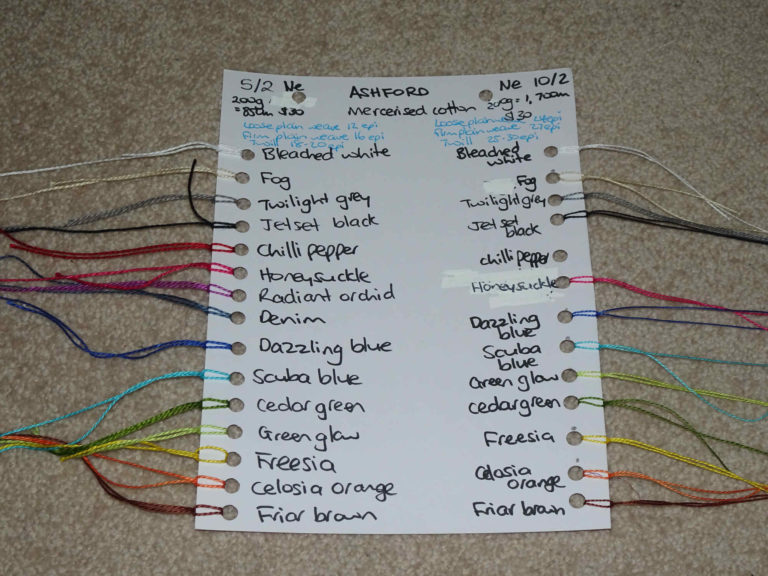 5/2 Ne
200g
= 850m $30
ASHFORD
Mercerised cotton
Ne 10/2
200g = 1,700m
$30
Loose plain weave 12 epi
Firm plain weave 16 epi
Twill 18-20 epi
Loose plain weave 24 epi
Firm plain weave 27 epi
Twill 25-30 epi
Bleached white
Fog
Twilight grey
Jetset black
Chilli pepper
Honeysuckle
Radiant orchid
Denim
Dazzling blue
Scuba blue
Cedar green
Green glow
Freesia
Celosia orange
Friar brown
Bleached
white
Fog
Twilight grey
Jetset
black
Chilli pepper
Honeysuckle
Dazzling
blue
Scuba
blue
Green glow
Cedar green
Freesia
Celosia
orange
Friar brown